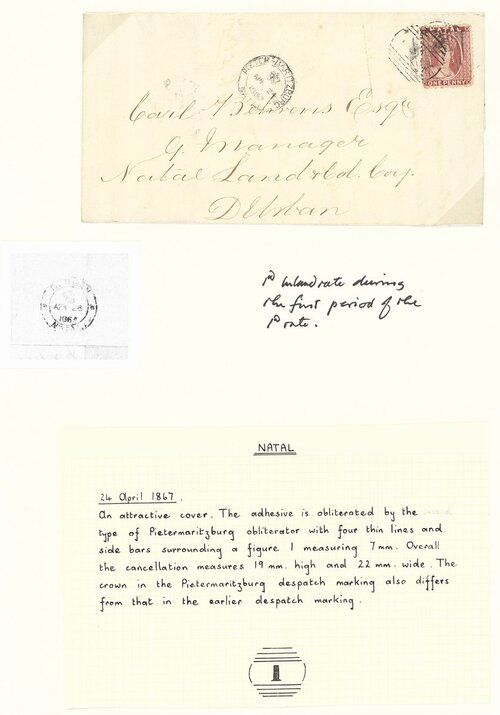 PIETERMARITZBURG
ONE PENNY
Carl Behrens Esqr
G. Manager
Natal Land & Col. Coy.
D'Urban
APR 26
186
NATAL
1d inland rate during
the first period of the
1d rate.
NATAL
24 April 1867.
An attractive cover. The adhesive is obliterated by the second
type of Pietermaritzburg obliterator with four thin lines and
side bars surrounding a figure 1 measuring 7mm. Overall
the cancellation measures 19mm. high and 22mm. wide. The
crown in the Pietermaritzburg despatch marking also differs
from that in the earlier despatch marking.
1